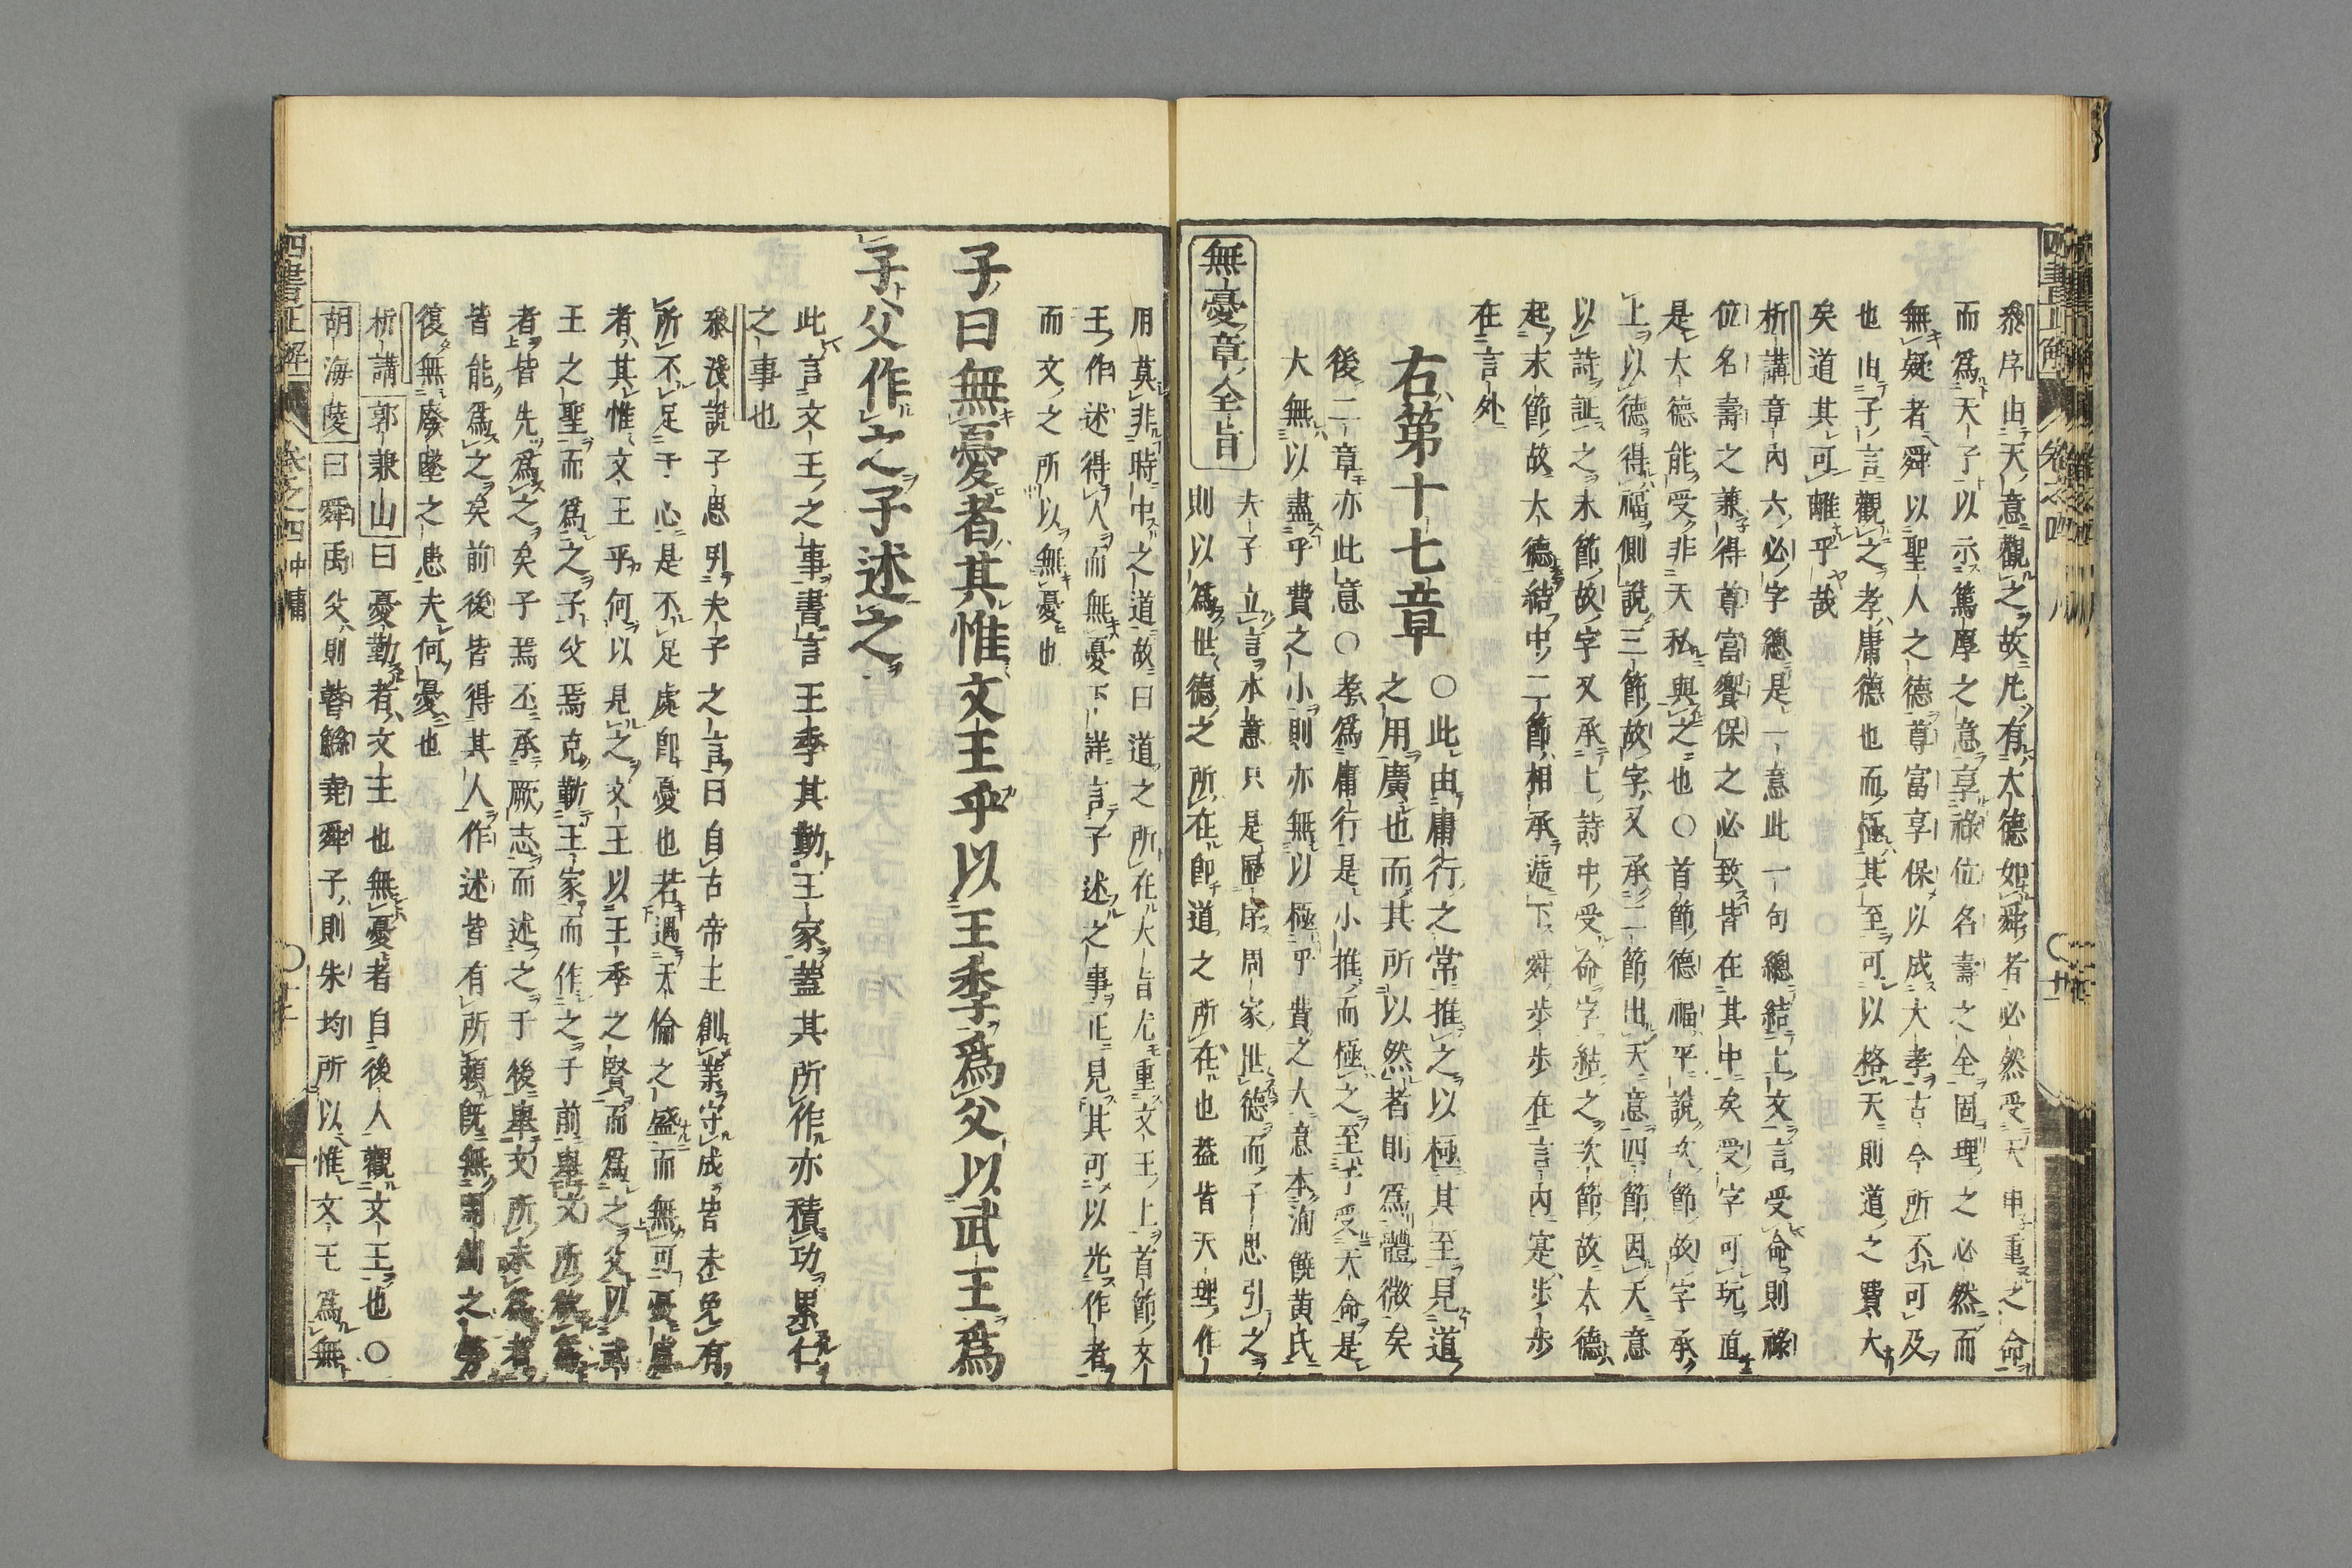 叅序由天意觀之故凡有大德如舜者必然受天申重之命
而爲天子以示篤厚之意享祿位名壽之全固理之必然而
無疑者舜以聖人之德尊富享保以成大孝古今所不可及
也由子言觀之孝庸德也而極其至可以格天則道之費大
矣道其可離乎哉
析講章內六必字總是一意此一句總結上文言受命則祿
位名壽之兼得尊富饗保之必致皆在其中矣受字可玩直
是大德能受非天私與之也○首節德福平說次節故字承
上以德得福側說三節故字又承二節出天意四節因天意
以詩証之末節故字又承上詩中受命字結之次節故大德
起末節故大德結中二節相承遞下歩歩在言內寔歩歩
在言外
右第十七章
○此由庸行之常推之以極其至見道
之用廣也而其所以然者則爲體微矣
後二章亦此意○孝爲庸行是小推而極之至于受天命是
大無以盡乎費之小則亦無以極乎費之大意本洵饒黃氏
無憂章全旨
夫子立言本意只是歷序周家世德而子思引之
則以爲世德之所在卽道之所在也益皆天理作
用莫非時中之道故曰道之所在大旨尤重文王上首節文
王作述得人而無憂下詳言子述之事正見其可以光作者
而文之所以無憂也
子曰無憂者其惟文王乎以王季爲父以武王爲
子父作之子述之
此言文王之事書言王季其勤王家蓋其所作亦積功累仁
之事也
叅淺說子思引夫子之言曰自古帝王創業守成皆未免有
所不足于心是不足處卽憂也若遇天倫之盛而無可憂慮
者其惟文王乎何以見之文王以王季之賢而爲之父以武
王之聖而爲之子父焉克勤王家而作之于前舉文所欲爲
者皆先爲之矣子焉丕承厥志而述之于後舉文所未爲者
皆能爲之矣前後皆得其人作述皆有所賴旣無開創之勞
復無廢墜之患夫何憂也
析講郭兼山曰憂勤者文王也無憂者自後人觀文王也○
胡海陵曰舜禹父則瞽鯀堯舜子則朱均所以惟文王爲無
四書正解
卷之四
中庸